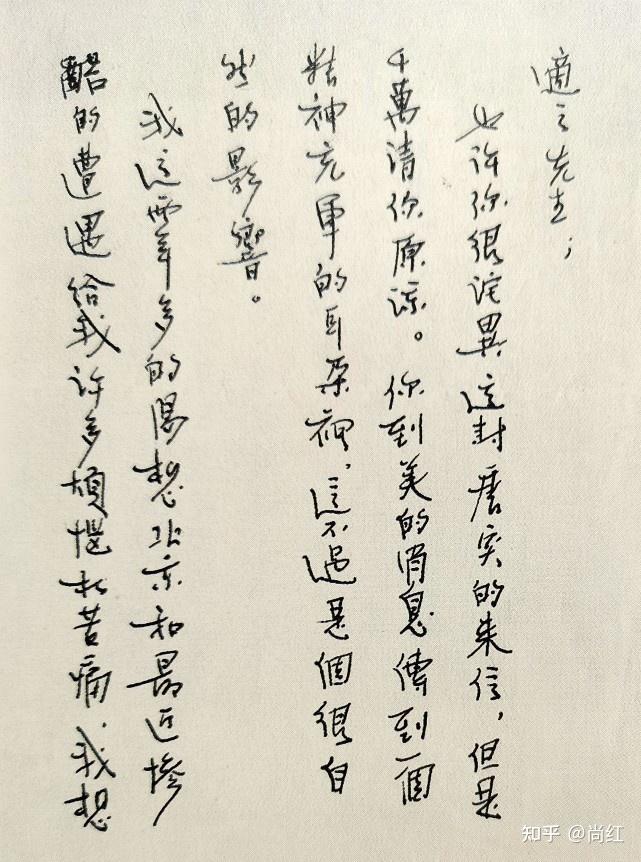 適之先生;
也許你很詫異這封唐突的來信，但是
千萬請你原諒。你到美的消息傳到一個
精神充軍的耳朵裡，這不過是個很自
然的影響。
我這兩年多的渴想北京和最近慘
酷的遭遇給我許多煩惱和苦痛、我想
知乎 @尚红